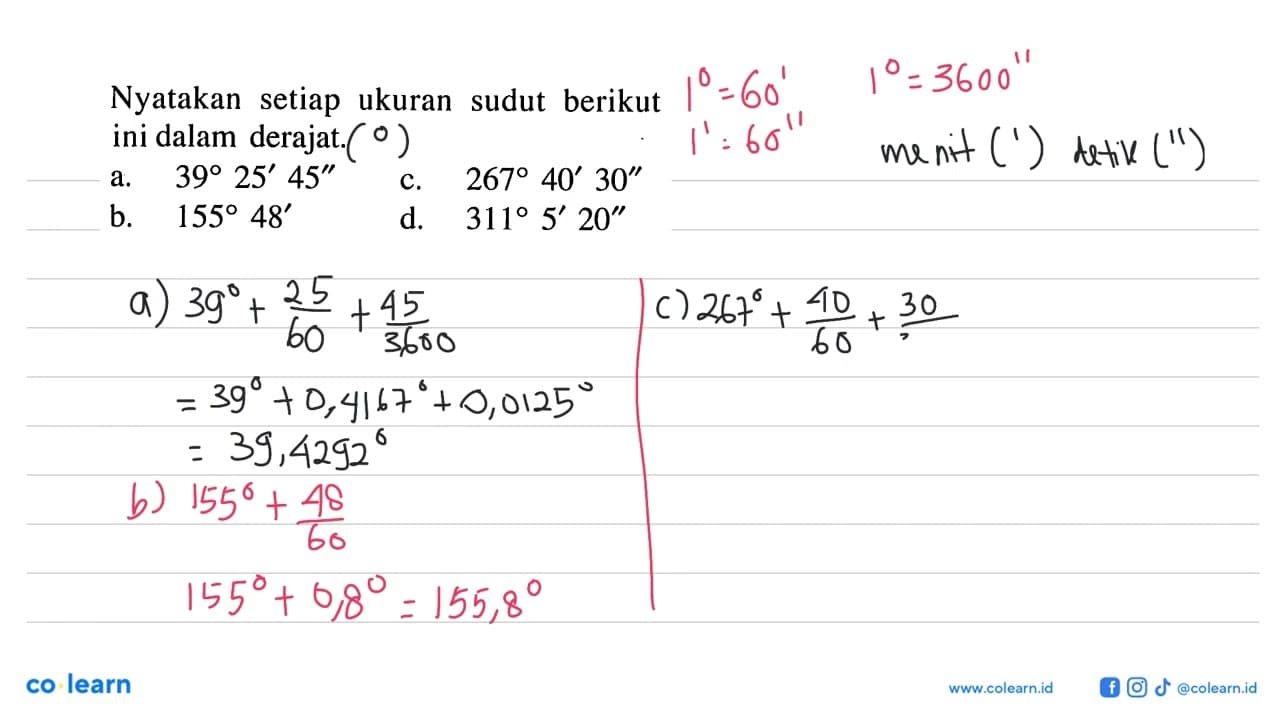 Nyatakan setiap ukuran sudut berikut
ini dalam derajat.(°)
a. 39° 25′ 45″ c. 267° 40′ 30″
b. 155° 48′ d. 311° 5′ 20″
1° = 60'
1' = 60"
1° = 3600"
menit (') detik (")
a) 39° + 25/60 + 45/3600
= 39° + 0,4167° + 0,0125°
= 39,4292°
b) 155° + 48/60
155° + 0,8° = 155,8°
c) 267° + 40/60 + 30/
co learn
www.colearn.id
@colearn.id